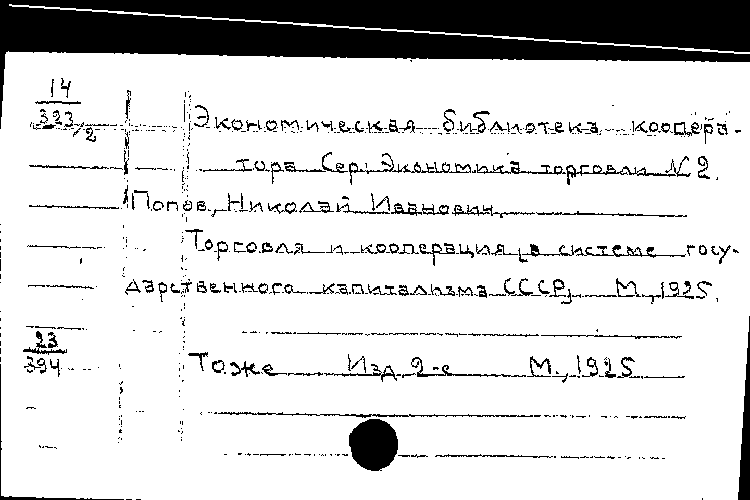 14
323/2
Экономическая библиотека коопера-
тора Сер. Экономика торговли № 2.
Попов, Николай Иванович.
Торговля и кооперация [в системе госу-
дарственного капитализма СССР] М., 1925.
23
394
Тоже Изд. 2-е М., 1925